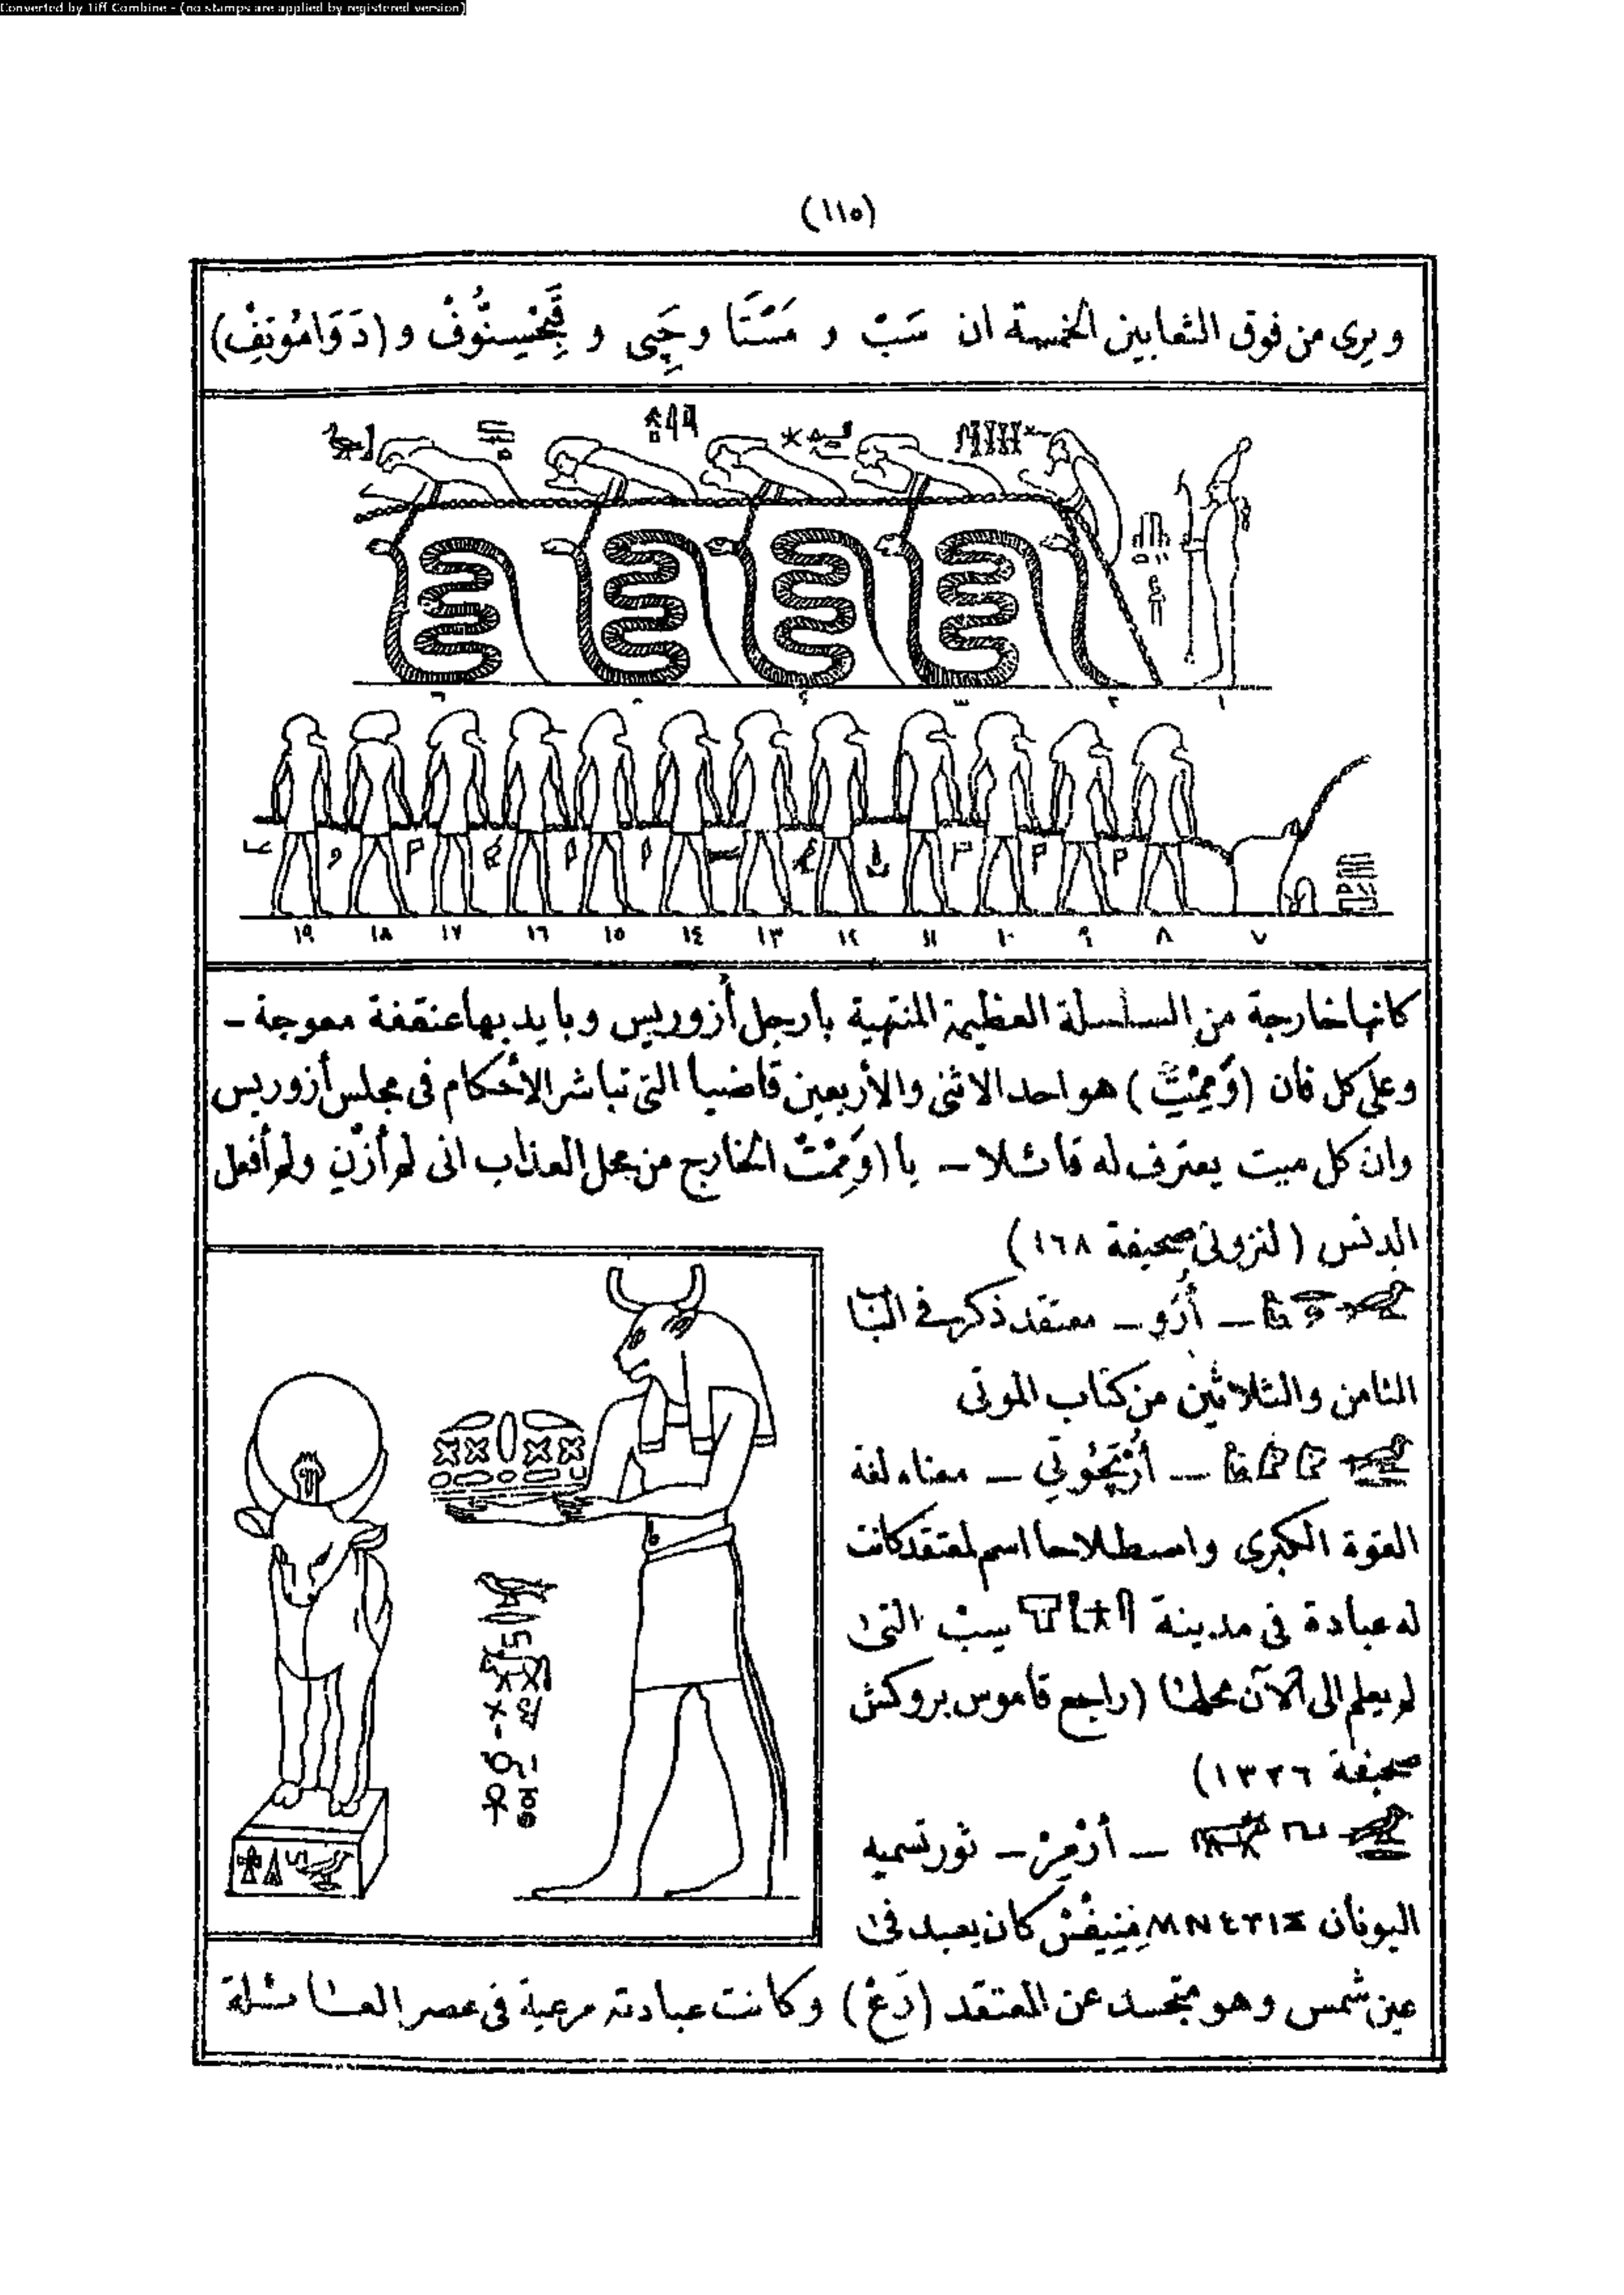 Converted by Tiff Combine - (no stamps are applied by registered version)
(١١٥)
ويرى من فوق الثعابين الخمسة ان سَبْ و مَسْتَا وحَپِى و قَبِحْسِنُّوُفْ و (دَوَامُوتِفِ)
١ ٢ ٣ ٤ ٥ ٦
٧ ٨ ٩ ١٠ ١١ ١٢ ١٣ ١٤ ١٥ ١٦ ١٧ ١٨ ١٩
كانها خارجة من السلسلة العظيمة المنتهية بارجل أزوريس وبايديها عنقفة معوجة –
وعلى كل فان هو احد الاثنى والأربعين قاضيا التى تباشر الأحكام فى مجلس أزوريس
وان كل ميت يعترف له قائلا – يا الخارج من محل العذاب انى لم أزْنِ ولم أفعل
الدنس (لنزونى صحيفة ١٦٨)
– أُرُو – معتقد ذكر فى البا
الثامن والثلاثين من كتاب الموتى
– – معناه لغة
القوة الكبرى واصطلاحا اسم لمعتقد كانت
له عبادة فى مدينة يسب التى
لم يعلم الى الآن محلها (راجع قاموس بروكش
صحيفة ١٣٢٦)
– أرْمِرْ – ثور تسميه
اليونان كان يعبد فى
عين شمس وهو متجسد عن المعتقد (رَعْ) وكانت عبادته مرعية فى عصر العائلة